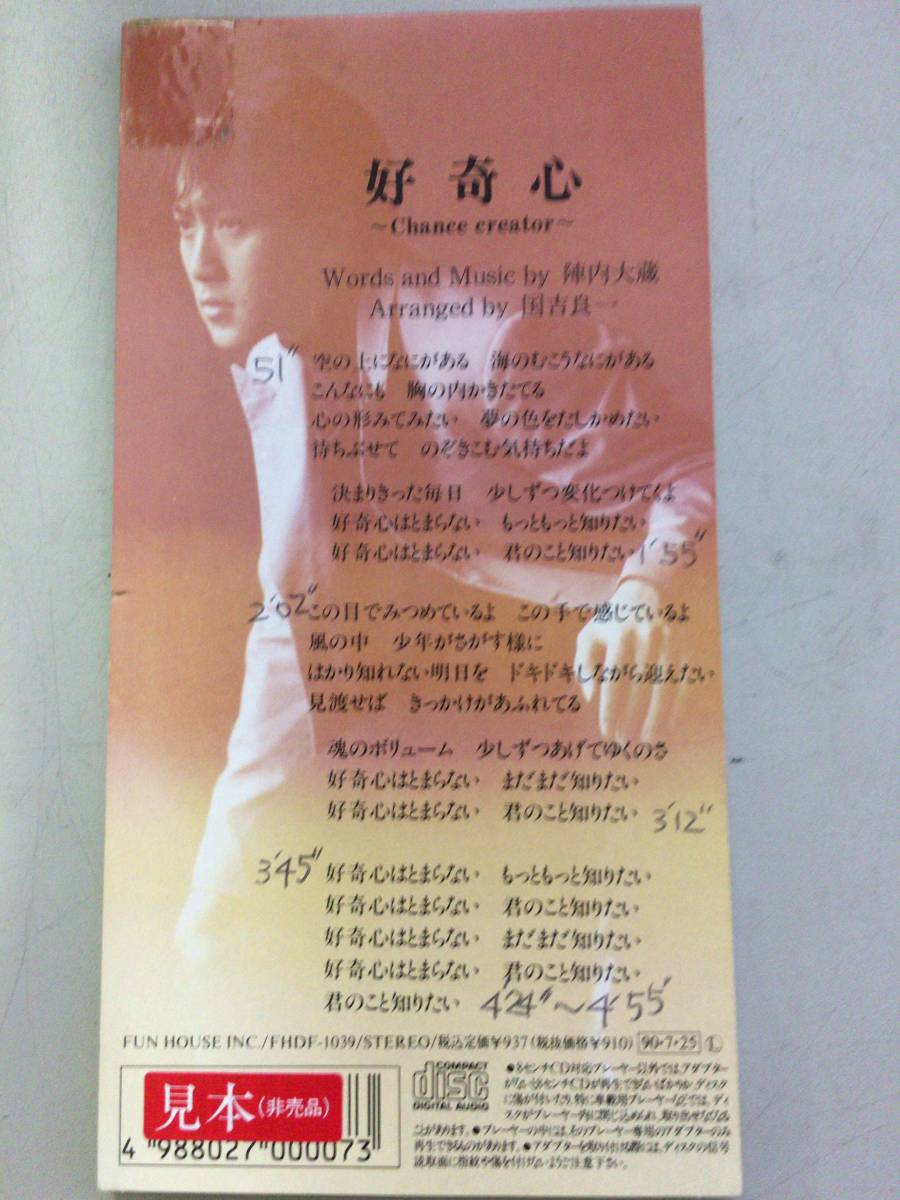 好奇心
~Chance creator~
Words and Music by 陣内大蔵
Arranged by 国吉良一
51″ 空の上になにがある 海のむこうなにがある
こんなにも 胸の内かきたてる
心の形みてみたい 夢の色をたしかめたい
待ちぶせて のぞきこむ気持ちだよ
決まりきった毎日 少しずつ変化つけてくよ
好奇心はとまらない もっともっと知りたい
好奇心はとまらない 君のこと知りたい 1′55″
2′02″ この目でみつめているよ この手で感じているよ
風の中 少年がさがす様に
はかり知れない明日を ドキドキしながら迎えたい
見渡せば きっかけがあふれてる
魂のボリューム 少しずつあげてゆくのさ
好奇心はとまらない まだまだ知りたい
好奇心はとまらない 君のこと知りたい 3′12″
3′45″ 好奇心はとまらない もっともっと知りたい
好奇心はとまらない 君のこと知りたい
好奇心はとまらない まだまだ知りたい
好奇心はとまらない 君のこと知りたい
君のこと知りたい 4′24″〜4′55″
FUN HOUSE INC./FHDF-1039/STEREO/税込定価¥937(税抜価格¥910) 90・7・25 Ⓛ
見本(非売品)
4 988027 000073
COMPACT disc DIGITAL AUDIO
●8センチCD対応プレーヤー以外では、アダプター
がないと8センチCDが再生できないばかりか、ディスク
に傷が付いたり、特に車載用プレーヤーなどでは、ディ
スクがプレーヤー内に閉じ込められ、取り出せなくなる
ことがあります。●プレーヤーの中には、そのプレーヤー専用のアダプターのみ
再生できるものがあります。●アダプターを取り付ける際には、ディスクの信号
読取面に指紋や傷を付けないようご注意下さい。